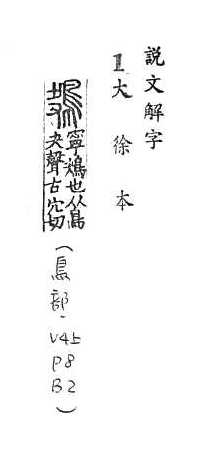 說文解字
1大徐本
鴂寧鴂也从鳥
夬聲古穴切
(鳥部，V4上
P8
B2)